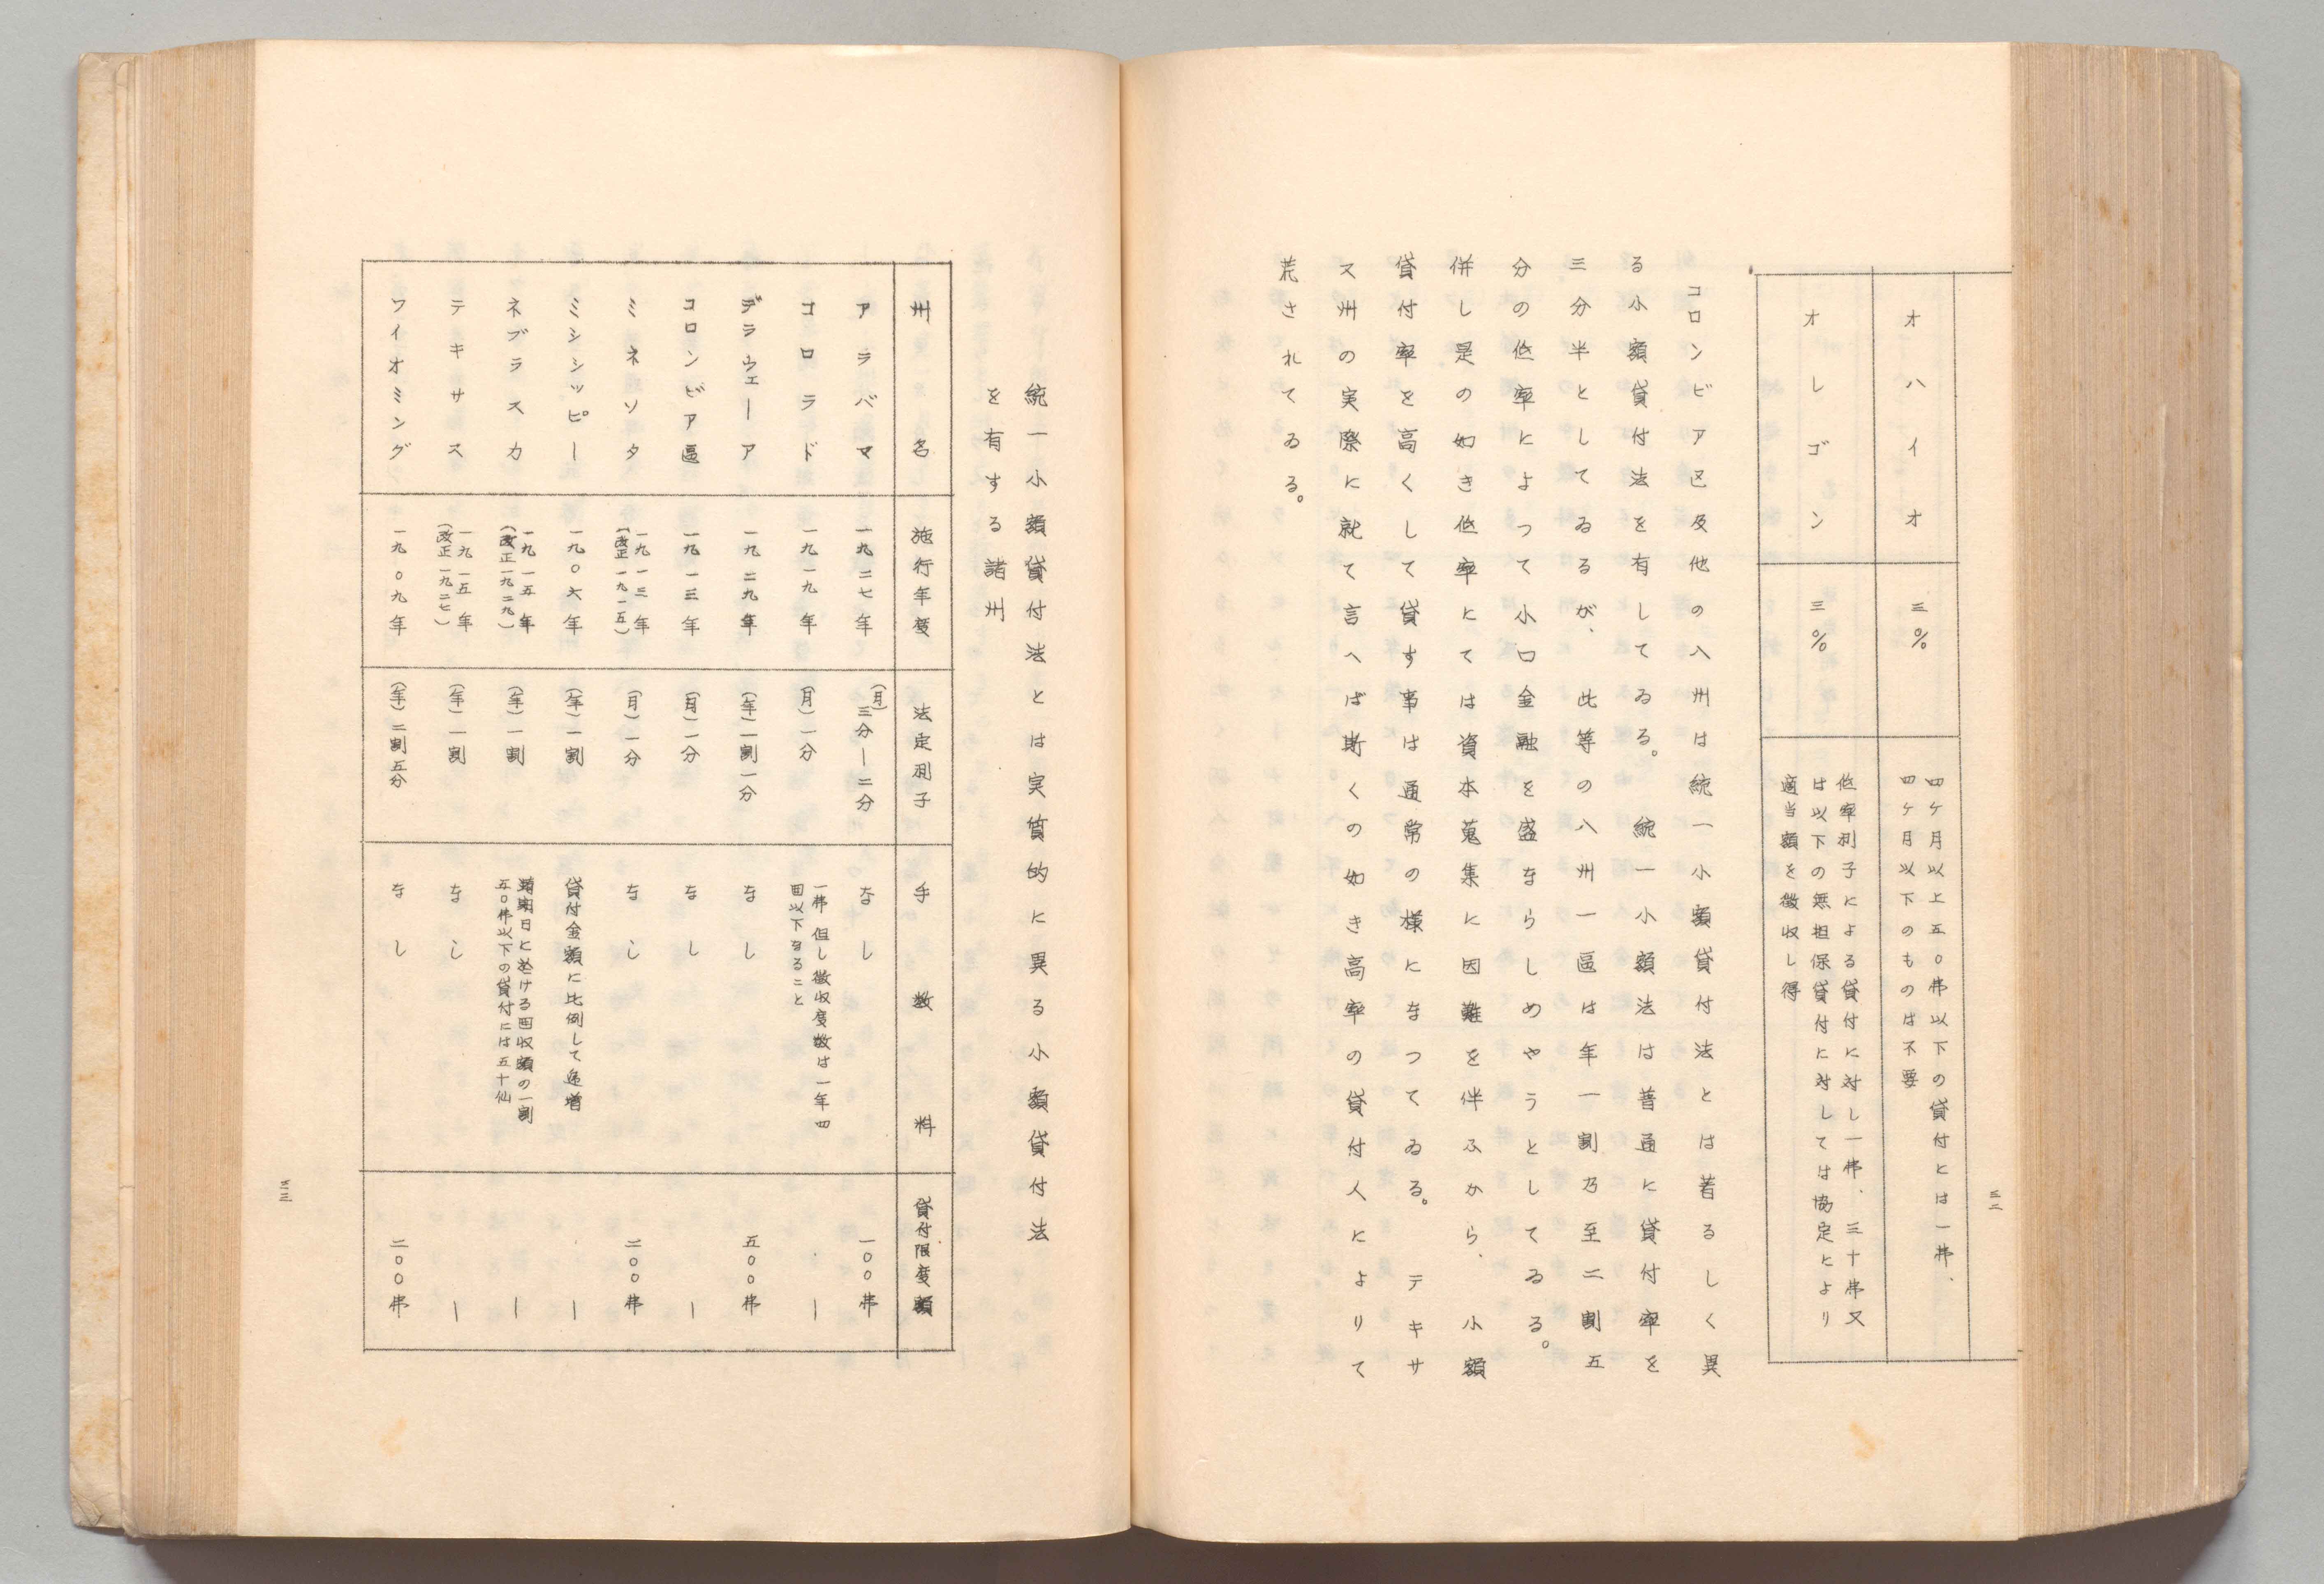 三二
オハイオ
三%
四ケ月以上五〇弗以下の貸付には一弗、
四ケ月以下のものは不要
オレゴン
三%
低率利子による貸付に対し一弗、三十弗又
は以下の無担保貸付に対しては協定により
適当額を徴収し得
コロンビア区及他の八州は統一小額貸付法とは著るしく異
る小額貸付法を有してゐる。統一小額法は普通に貸付率を
三分半としてゐるが、此等の八州一區は年一割乃至二割五
分の低率によつて小口金融を盛ならしめやうとしてゐる。
併し是の如き低率にては資本蒐集に困難を伴ふから、小額
貸付率を高くして貸す事は通常の様になつてゐる。テキサ
ス州の実際に就て言へば斯くの如き高率の貸付人によりて
荒されてゐる。
統一小額貸付法とは実質的に異る小額貸付法
を有する諸州
州名 施行年度 法定利子 手数料 貸付限度額
アラバマ 一九二七年 (月)三分―二分 なし 一〇〇弗
コロラド 一九一九年 (月)一分 一弗但し徴収度数は一年四
回以下なること ―
デラウェーア 一九二九年 (年)一割一分 なし 五〇〇弗
コロンビア區 一九一三年 (月)一分 なし ―
ミネソタ 一九一三年
(改正一九一五) (月)一分 なし 二〇〇弗
ミシシッピー 一九〇六年 (年)一割 貸付金額に比例して逓増 ―
ネブラスカ 一九一五年
(改正一九二九) (年)一割 満期日に於ける回収額の一割
五〇弗以下の貸付には五十仙 ―
テキサス 一九一五年
(改正一九二七) (年)一割 なし ―
ワイオミング 一九〇九年 (年)二割五分 なし 二〇〇弗
三三